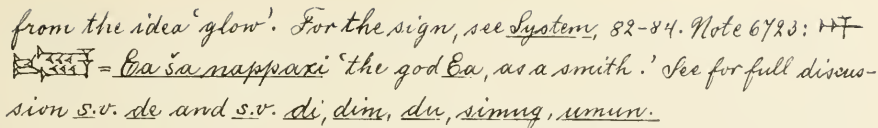 from the idea 'glow'. For the sign, see System, 82-84. Note 6723: 𒀭
= Ea ša nappaxi 'the god Ea, as a smith.' See for full discus-
sion s.v. de and s.v. di, dim, du, simug, umun.